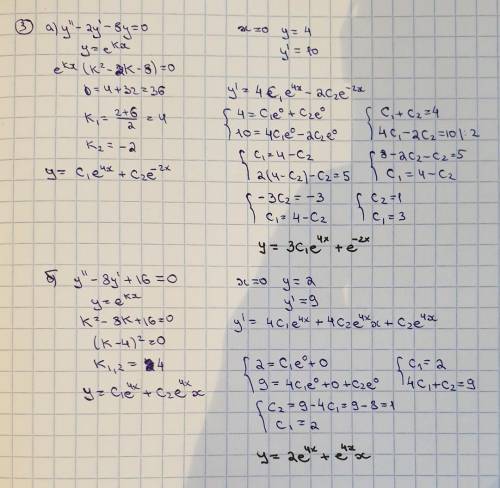 ③ а) y'' - 2y' - 8y = 0
y = e^{kx}
e^{kx} (k² - 2k - 8) = 0
D = 4 + 32 = 36
k₁ = \frac{2+6}{2} = 4
k₂ = -2
y = c₁e^{4x} + c₂e^{-2x}
x = 0 y = 4
y' = 10
y' = 4c₁e^{4x} - 2c₂e^{-2x}
{ 4 = c₁e⁰ + c₂e⁰ { c₁ + c₂ = 4
10 = 4c₁e⁰ - 2c₂e⁰ 4c₁ - 2c₂ = 10 | :2
{ c₁ = 4 - c₂ { 8 - 2c₂ - c₂ = 5
2(4 - c₂) - c₂ = 5 c₁ = 4 - c₂
{ -3c₂ = -3 { c₂ = 1
c₁ = 4 - c₂ c₁ = 3
y = 3c₁e^{4x} + e^{-2x}
б) y'' - 8y' + 16 = 0
y = e^{kx}
k² - 8k + 16 = 0
(k - 4)² = 0
k₁,₂ = 4
y = c₁e^{4x} + c₂e^{4x}x
x = 0 y = 2
y' = 9
y' = 4c₁e^{4x} + 4c₂e^{4x}x + c₂e^{4x}
{ 2 = c₁e⁰ + 0 { c₁ = 2
9 = 4c₁e⁰ + 0 + c₂e⁰ 4c₁ + c₂ = 9
{ c₂ = 9 - 4c₁ = 9 - 8 = 1
c₁ = 2
y = 2e^{4x} + e^{4x}x